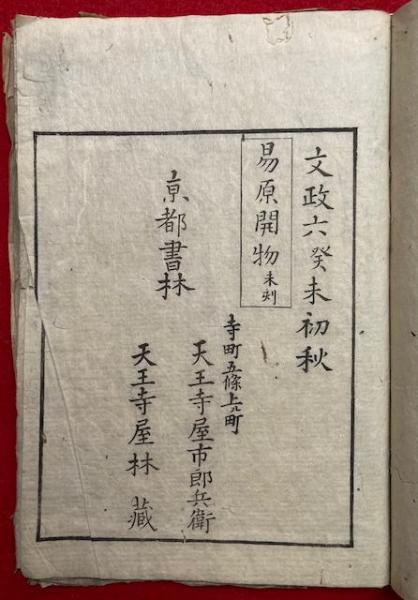 文政六癸未初秋
易原開物未刻
京都書林
寺町五條上ル町
天王寺屋市郎兵衛
天王寺屋林藏